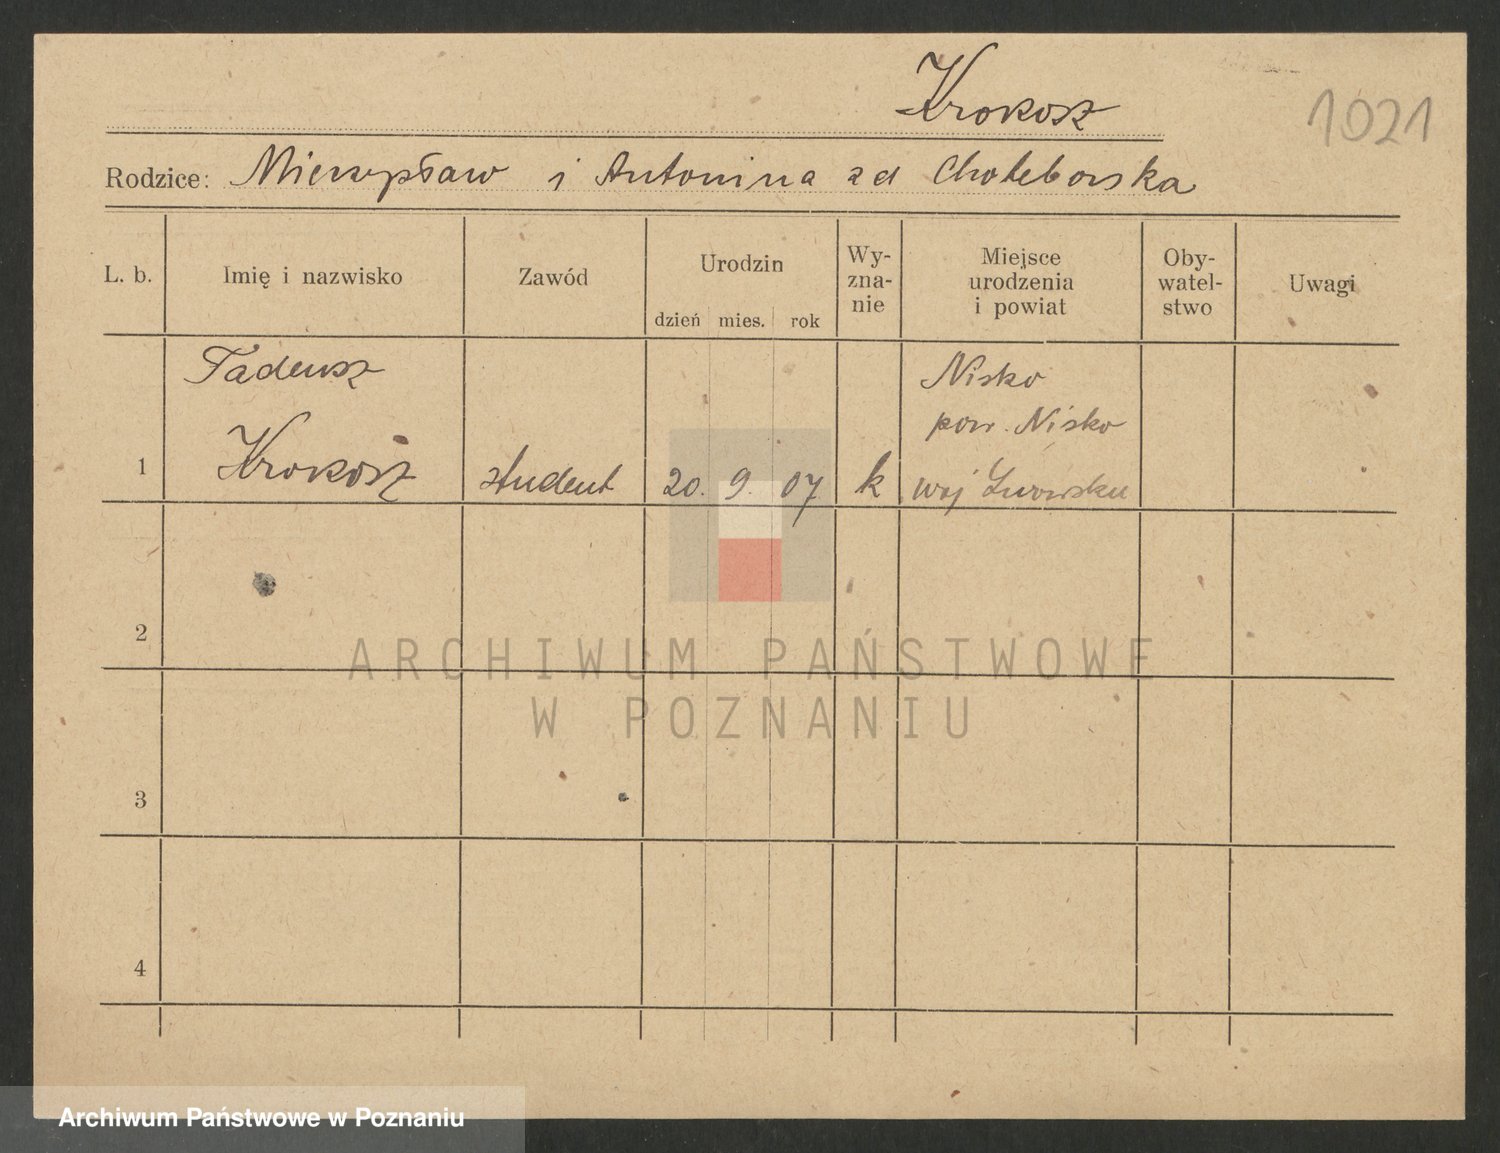 Krokosz
1021
Rodzice: Mieczysław i Antonina zd Choteborska
L. b.
Imię i nazwisko
Zawód
Urodzin
dzień mies. rok
Wy-
zna-
nie
Miejsce
urodzenia
i powiat
Oby-
watel-
stwo
Uwagi
Tadeusz
Nisko
pow. Nisko
1 Krokosz student 20. 9. 07 k woj Lwowskie
2
3
4
ARCHIWUM PAŃSTWOWE
W POZNANIU
Archiwum Państwowe w Poznaniu